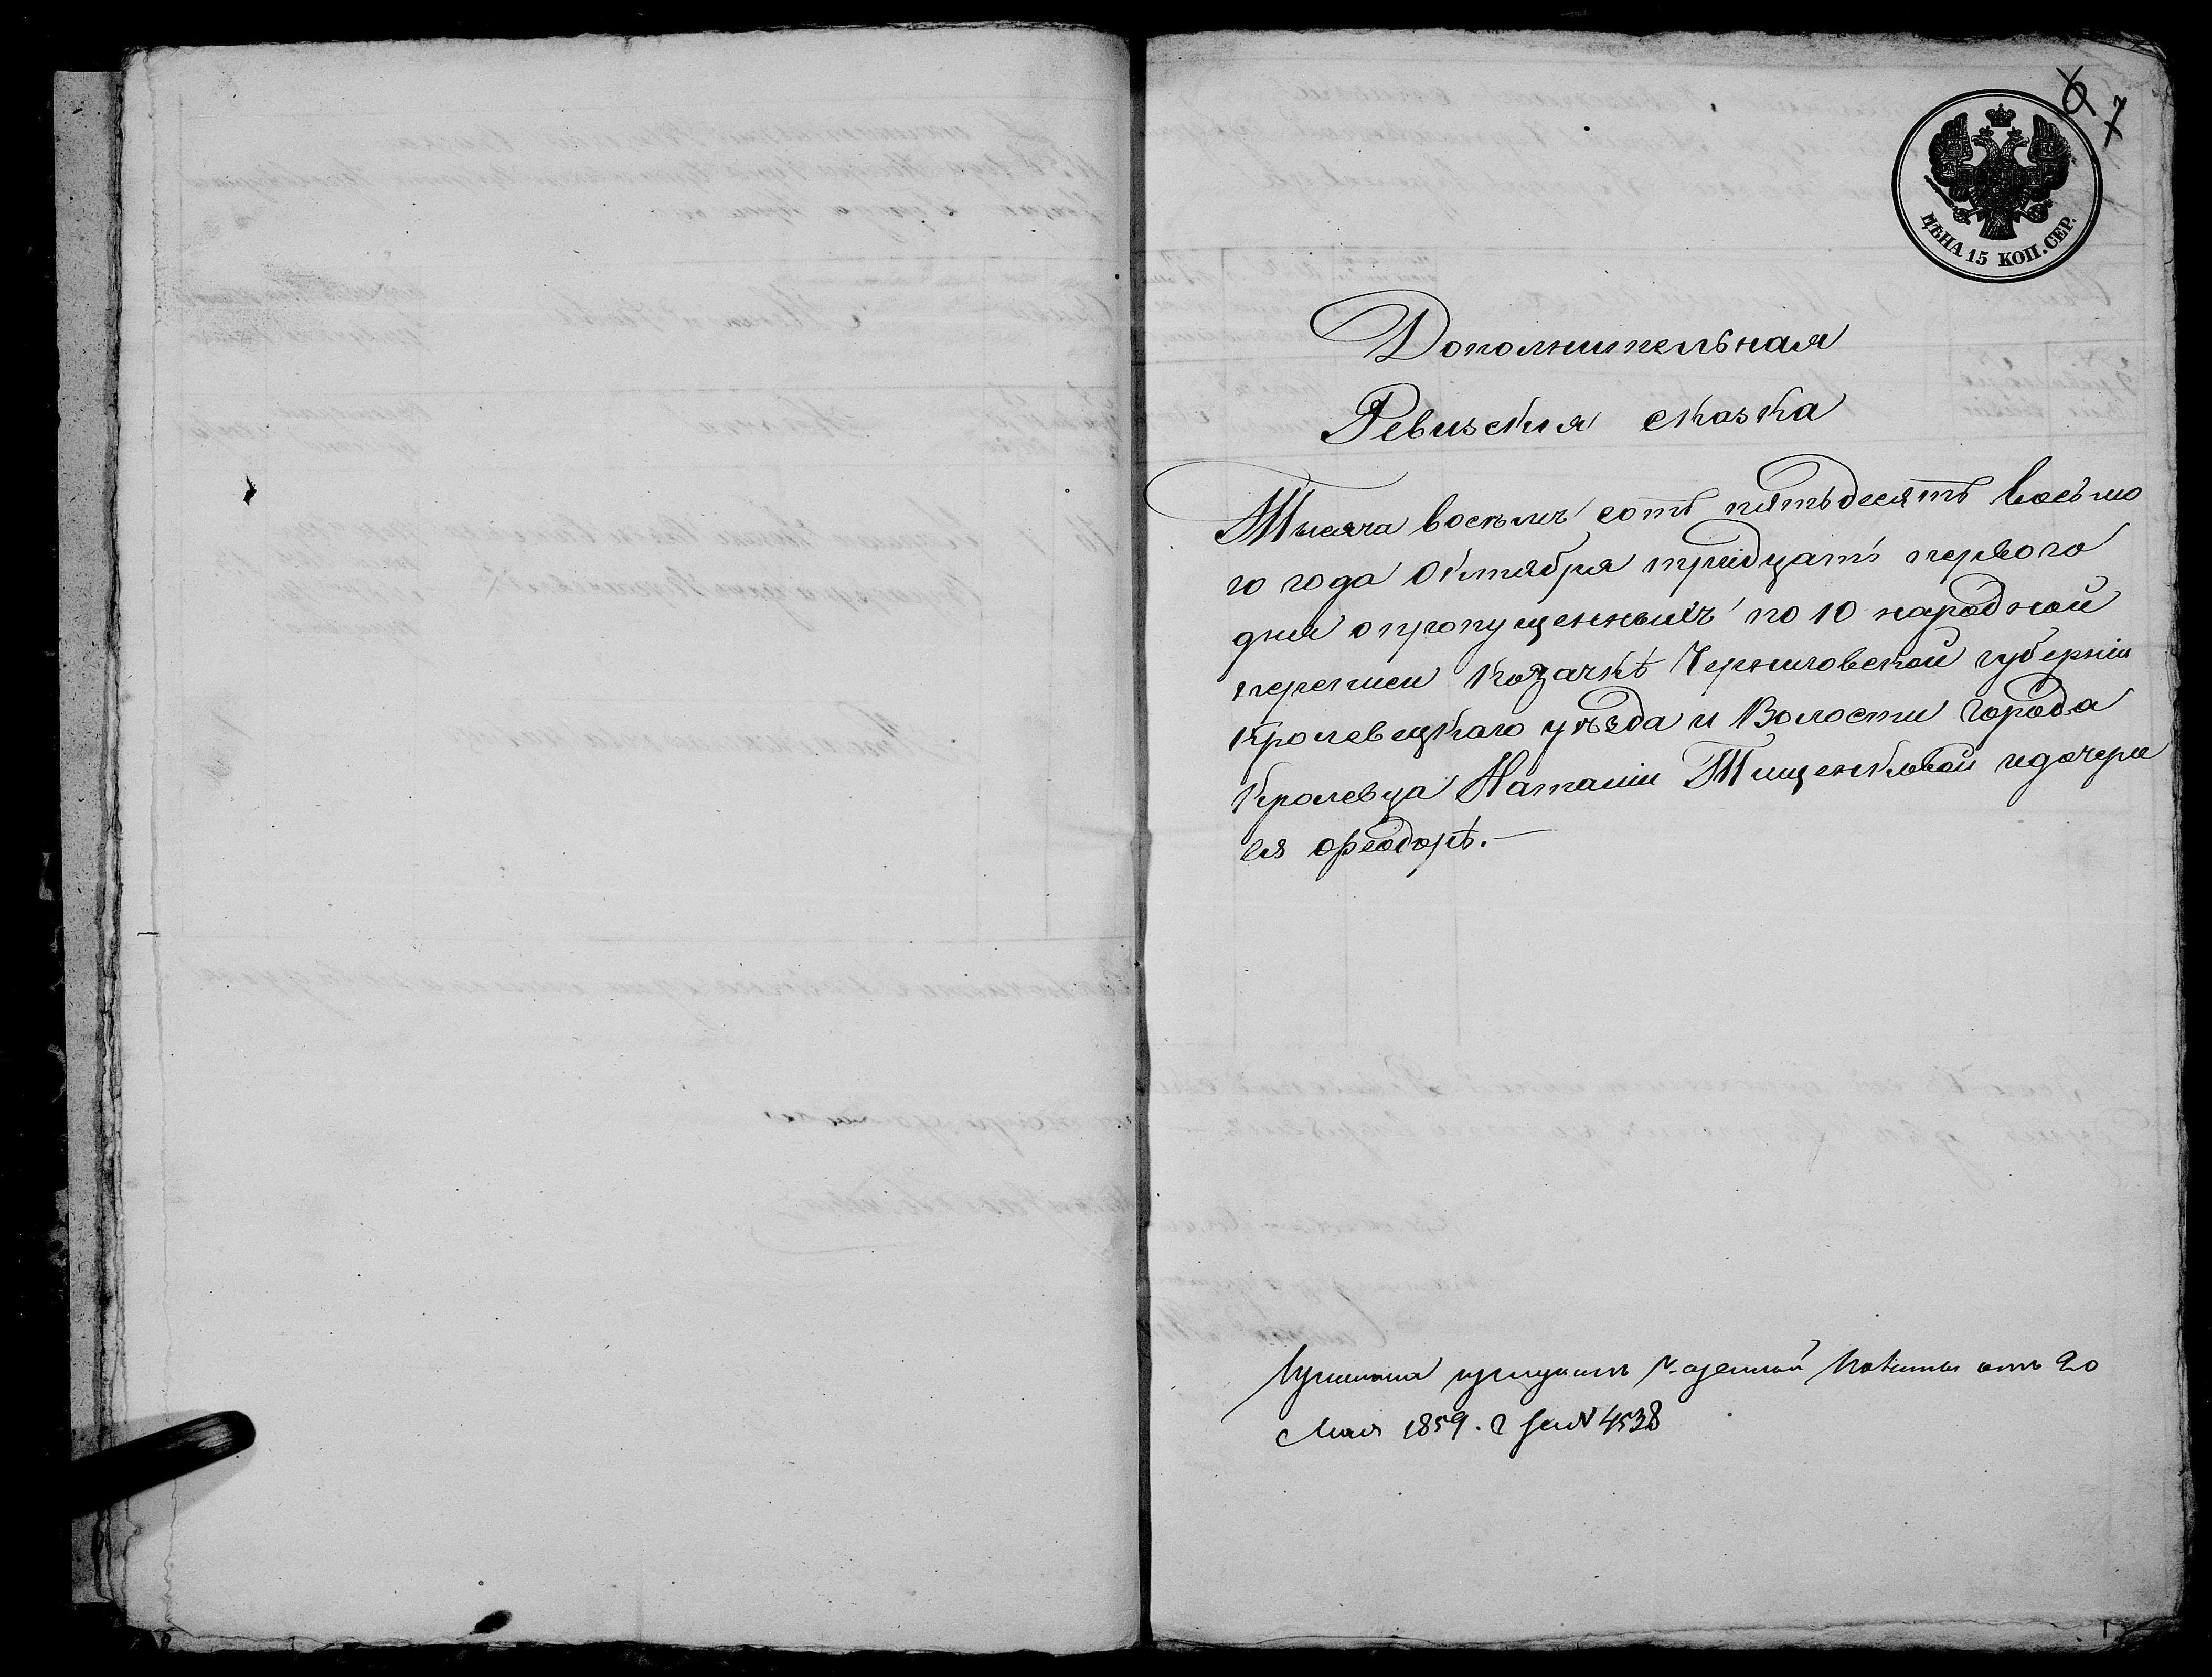 6 7
ЦѢНА 15 КОП. СЕР.
Дополнительная
Ревизская сказка
Тысяча восемъ сотъ пятьдесятъ восьмо
го года Октября тридцать первого
дня о пропущенныхъ по 10 народной
переписи козачкѣ Черниговской губерніи
Кролевецкаго уѣзда и Волости города
Кролевца Наталіи Тищенковой и дочери
ея Феодорѣ.
Казенной Палаты отъ 20
Мая 1859. г за № 4538